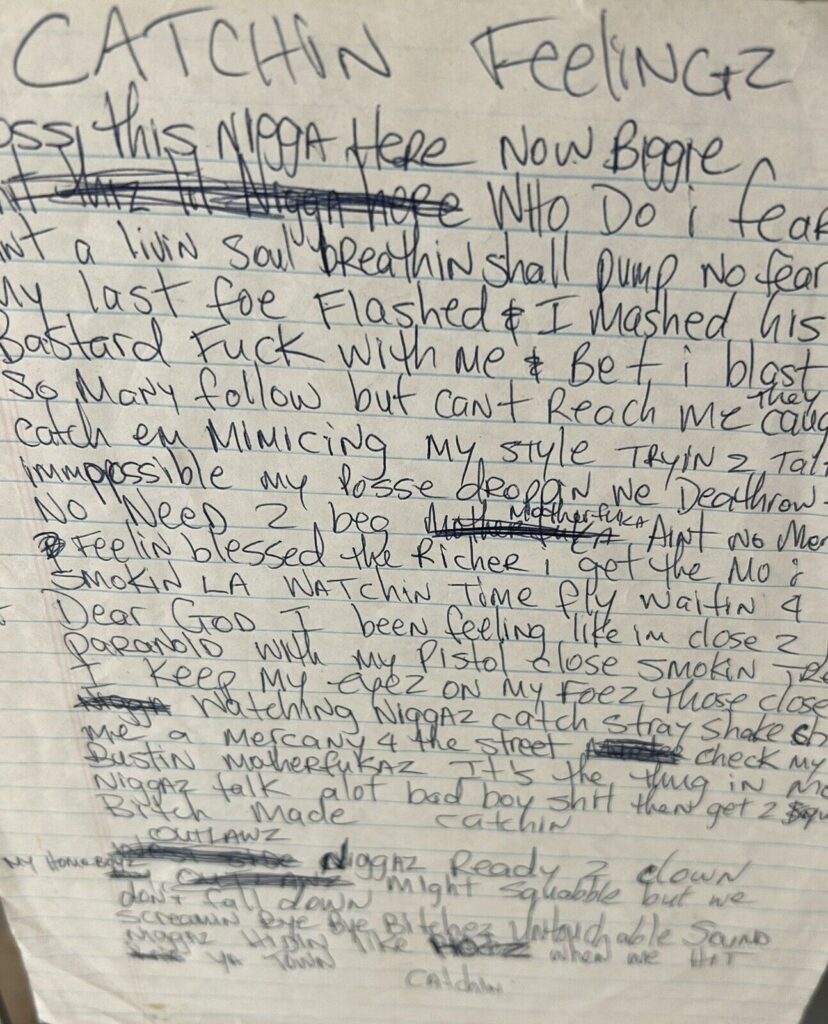 CATCHiN FeeliNGz
oss this NiggA HeRe NOW Biggie
WHO Do i feaR
a livin soul bReathiN shall pump No feaR
My last foe Flashed & I Mashed his
Bastard Fuck with Me & Bet i blast
So Many follow but caNt Reach Me they caug
catch em MiMiciNg My style TRyiN 2
immpossible my posse droppiN we DeathRow
No Need 2 beg MotherfukA AiNt No Mer
Feelin blessed the RicheR i get the Mo
SmokiN LA WATchiN Time fly waitiN 4
Dear GOD I been feeling like im close 2
paRANoid with my Pistol close smokiN
I Keep My eyez ON My Foez those close
Watching NiggAz catch stray shake
me a MercANy 4 the street check my
Bustin MotherfukAz It's the thug in
Niggaz talk alot bad boy shit then get 2
Bitch Made catchiN
OUTLAWZ
My HomeBoyz NiggAz Ready 2 clowN
don't fall down Might Squabble but we
ScreamiN Bye Bye Bitchez UNtouchable SouND
Niggaz HidiN like when we HiT
ya TowN
CATchiN